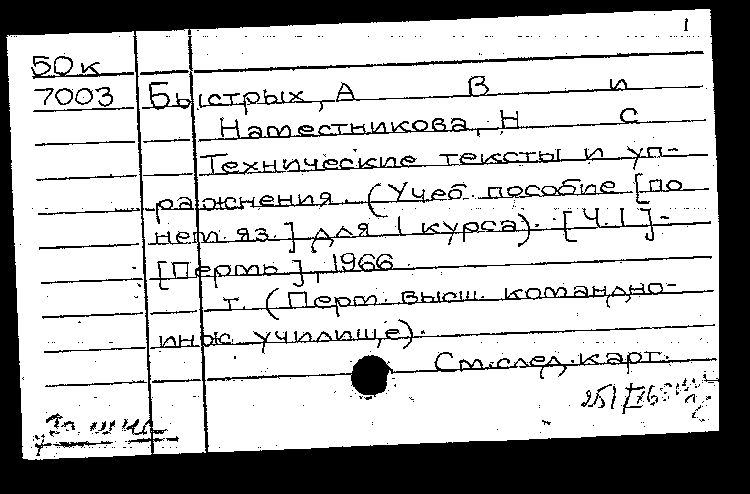 1
50к
7003 Быстрых, А В и
Наместникова, Н С
Технические тексты и уп-
ражнения. (Учеб. пособие [по
нем. яз.] для 1 курса). [Ч.1]-
[Пермь], 1966.
т. (Перм. высш. командно-
инж. училище).
См. след. карт.